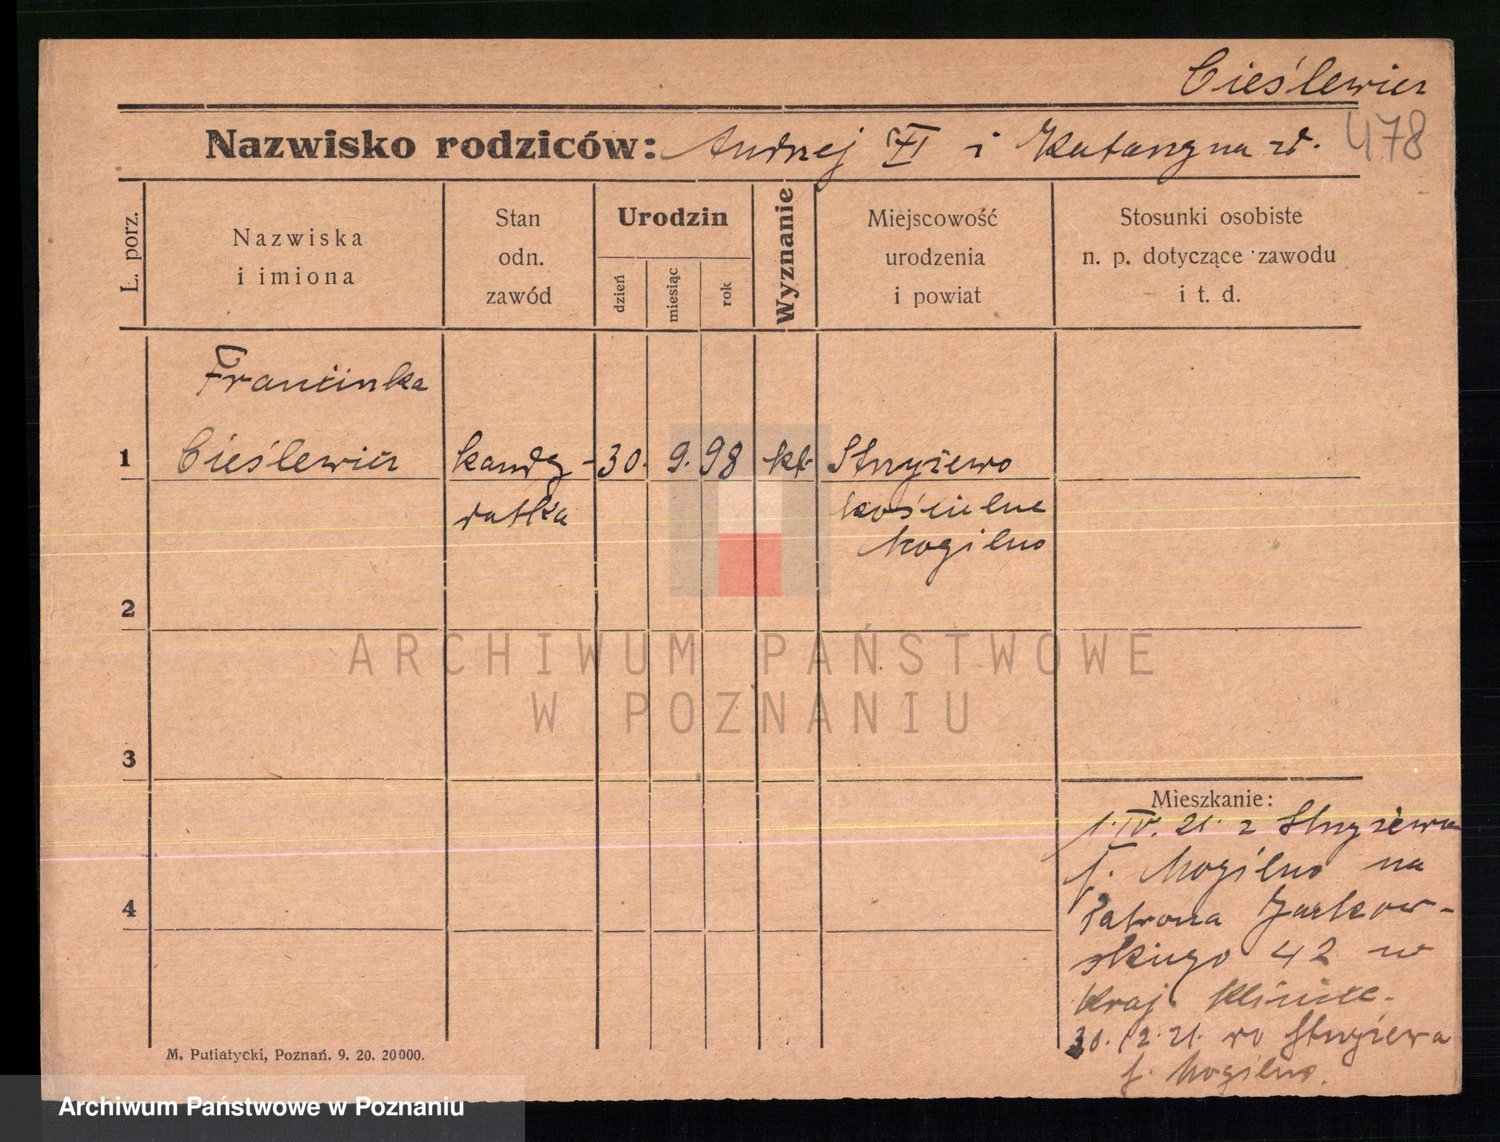 Cieślewicz
Nazwisko rodziców: Andrzej VI i Katarzyna zd. 478
L. porz.
Nazwiska
i imiona
Stan
odn.
zawód
Urodzin
dzień
miesiąc
rok
Wyznanie
Miejscowość
urodzenia
i powiat
Stosunki osobiste
n. p. dotyczące zawodu
i t. d.
Franciszka
1 Cieślewicz kandy- 30. 9. 98 kt. Strzyżewo
datka kościelne
Mogilno
2
ARCHIWUM PAŃSTWOWE
W POZNANIU
3
Mieszkanie:
1. IV. 21. z Strzyżewa
p. Mogilno na
Patrona Jackow-
skiego 42 w
Kraj. Klinice.
30.12.21. do Strzyżewa
p. Mogilno.
4
M. Putiatycki, Poznań. 9. 20. 20000.
Archiwum Państwowe w Poznaniu